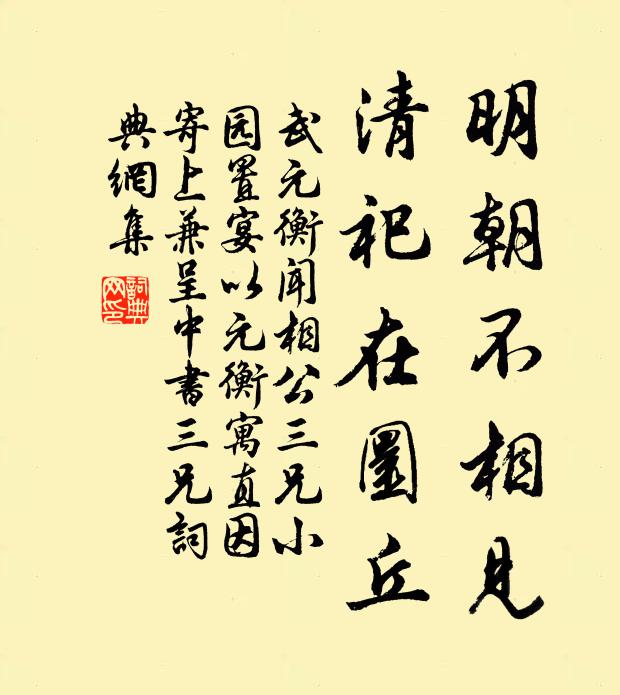 明朝不相見
清祀在圜丘
武元衡闻相公三兄小
园置宴以元衡寓直因
寄上兼呈中書三兄詞
典網集
詞典网印